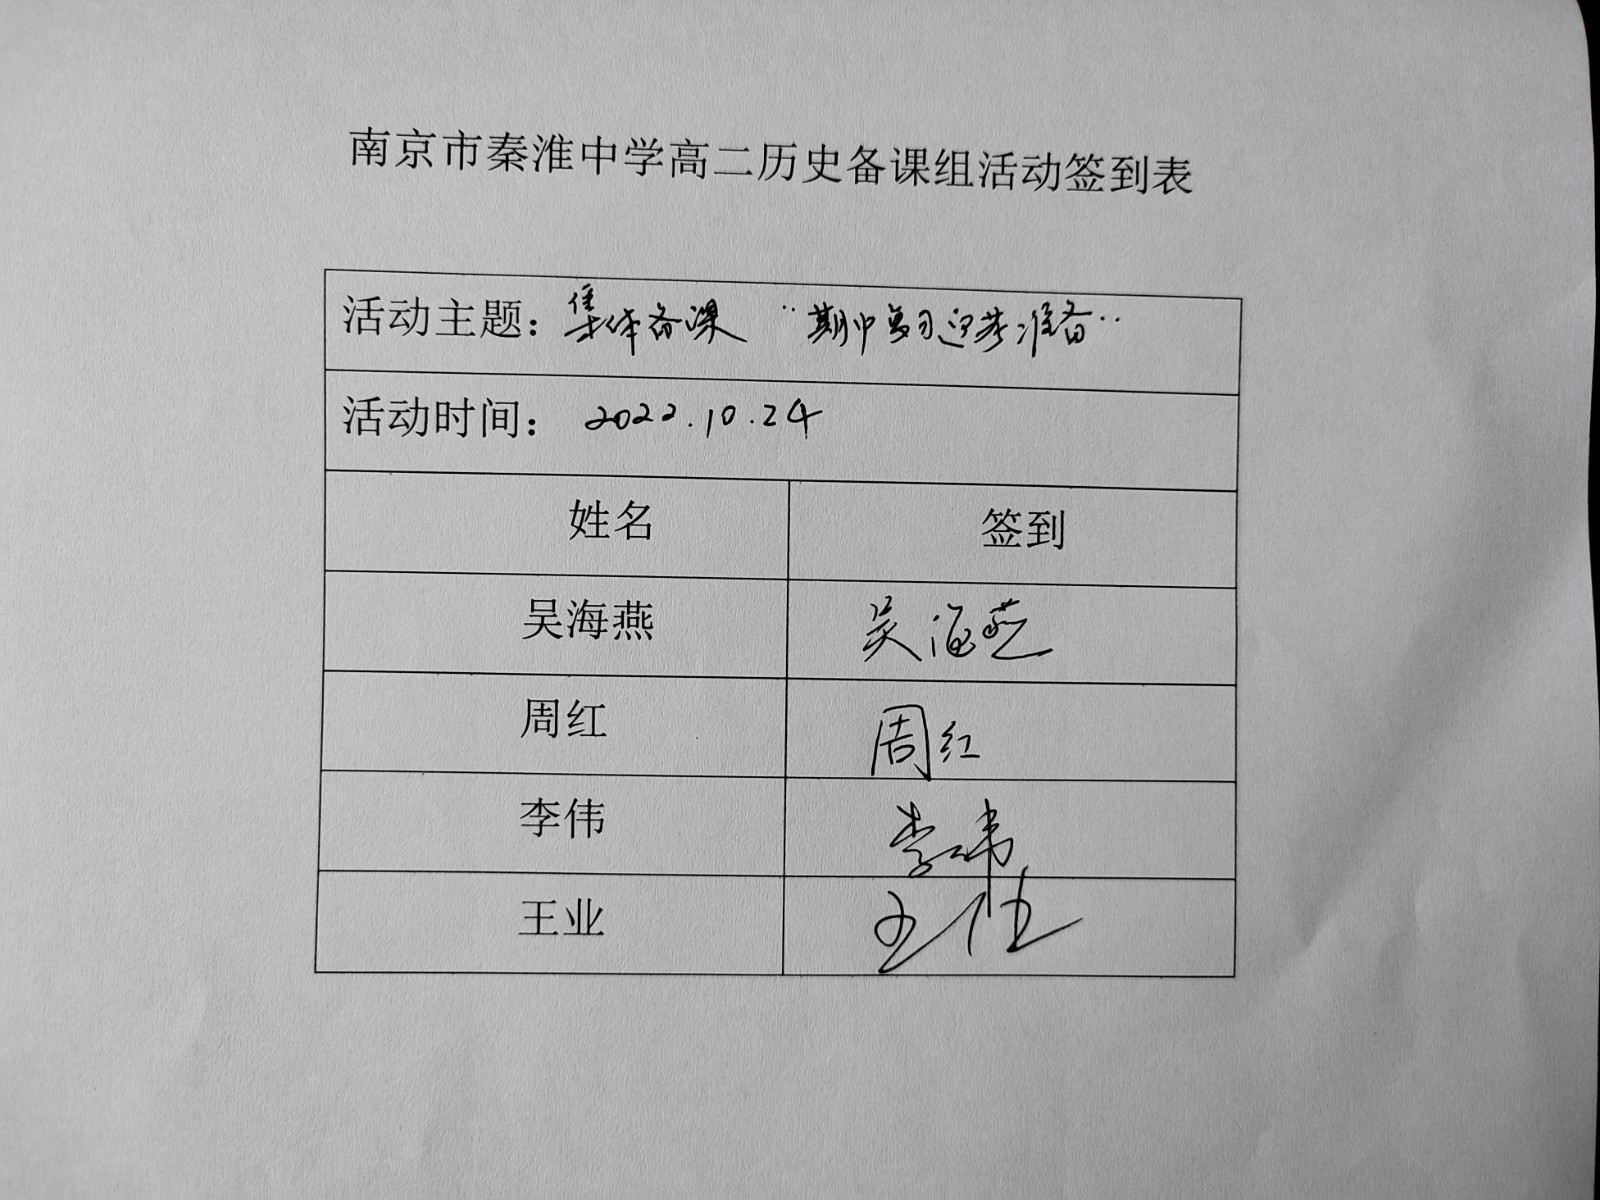 南京市秦淮中学高二历史备课组活动签到表
活动主题：集体备课 “期中复习迎考准备”
活动时间：2022.10.24
姓名 签到
吴海燕 吴海燕
周红 周红
李伟 李伟
王业 王